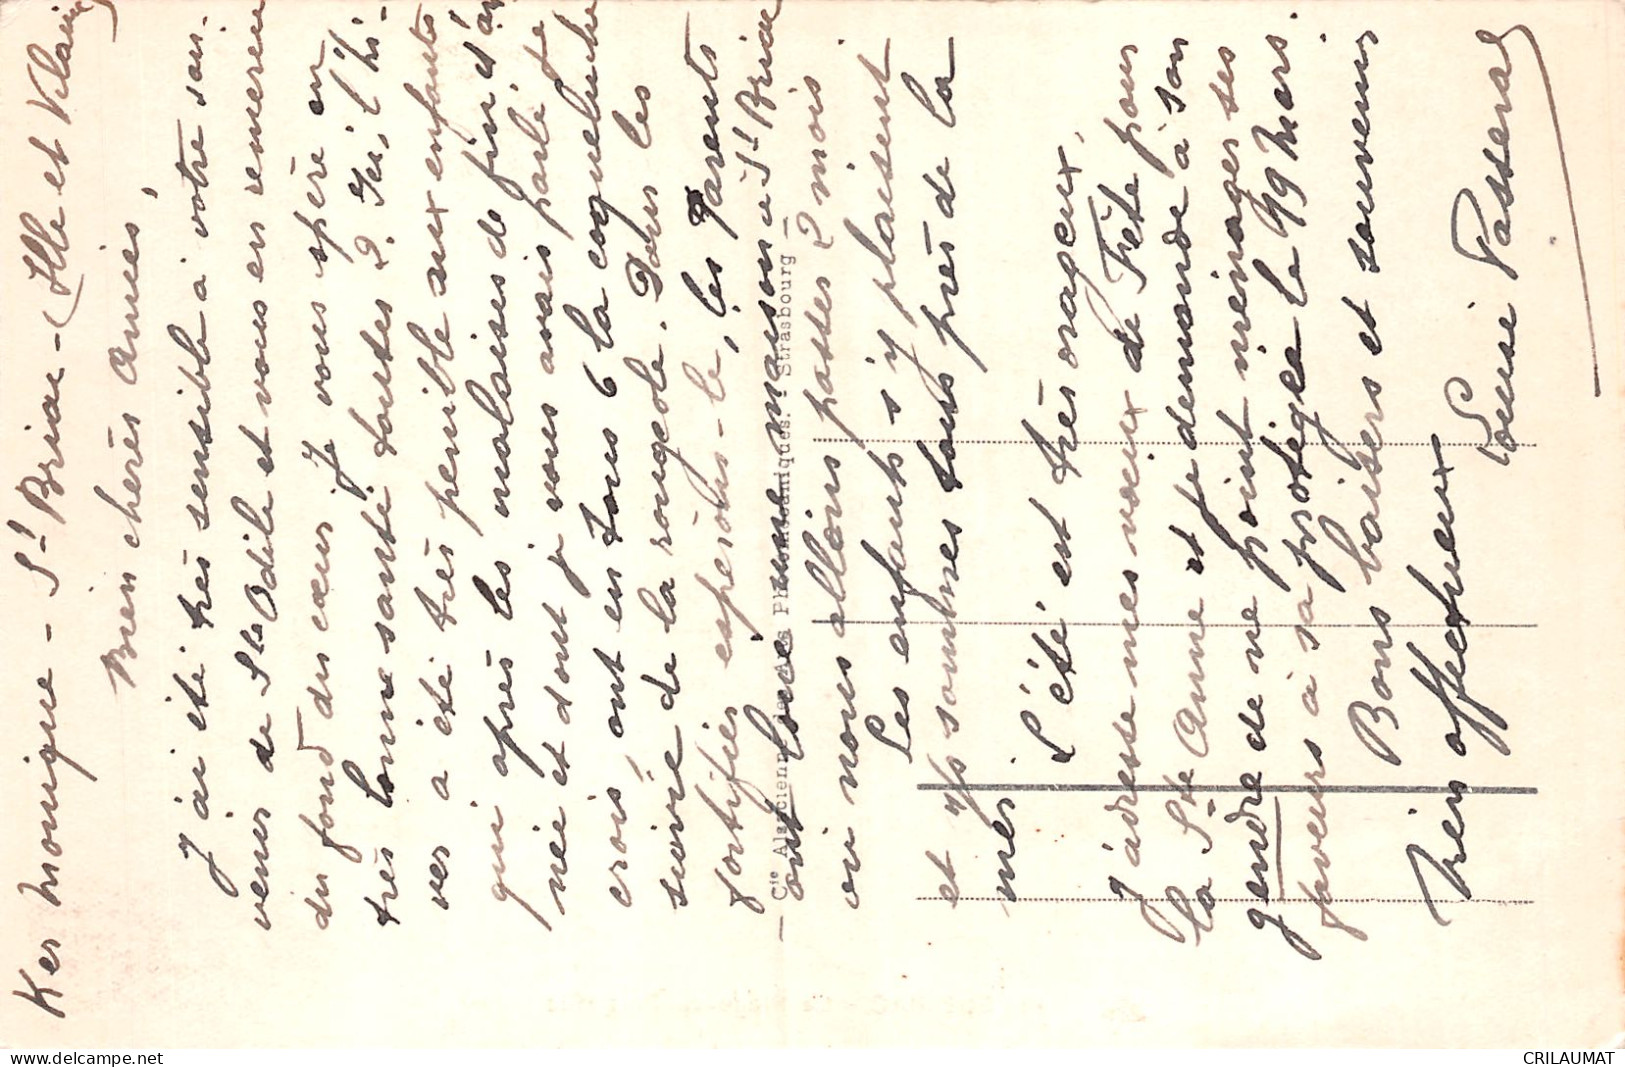 Ker Monique - St Briac - (Ille et Vilaine)
Bien chères Amies,
J'ai été très sensible à votre sou-
venir de Ste Odile et vous en remercie
du fond du cœur. Je vous espère en
très bonne santé toutes 2. Ici, l'hi-
ver a été très pénible aux enfants
qui après les malaises de fin d'an-
née et dont je vous avais parlé je
crois, ont eu tous 6 la coqueluche
suivie de la rougeole. Pour les
fortifier espérons-le, les Parents
ont loué une maison à St Briac
où nous allons passer 2 mois
Les enfants s'y plaisent
et ns sommes tous près de la
mer.
L'été est très orageux,
J'adresse mes vœux de Fête pour
la Ste Anne et je demande à son
gendre de ne point ménager ses
faveurs à sa protégée le 99 Mars.
Bons baisers et souvenirs
Très affectueux
Louise Passerat
— Cie Alsacienne des Arts Photomécaniques. - Strasbourg —
www.delcampe.net
CRILAUMAT